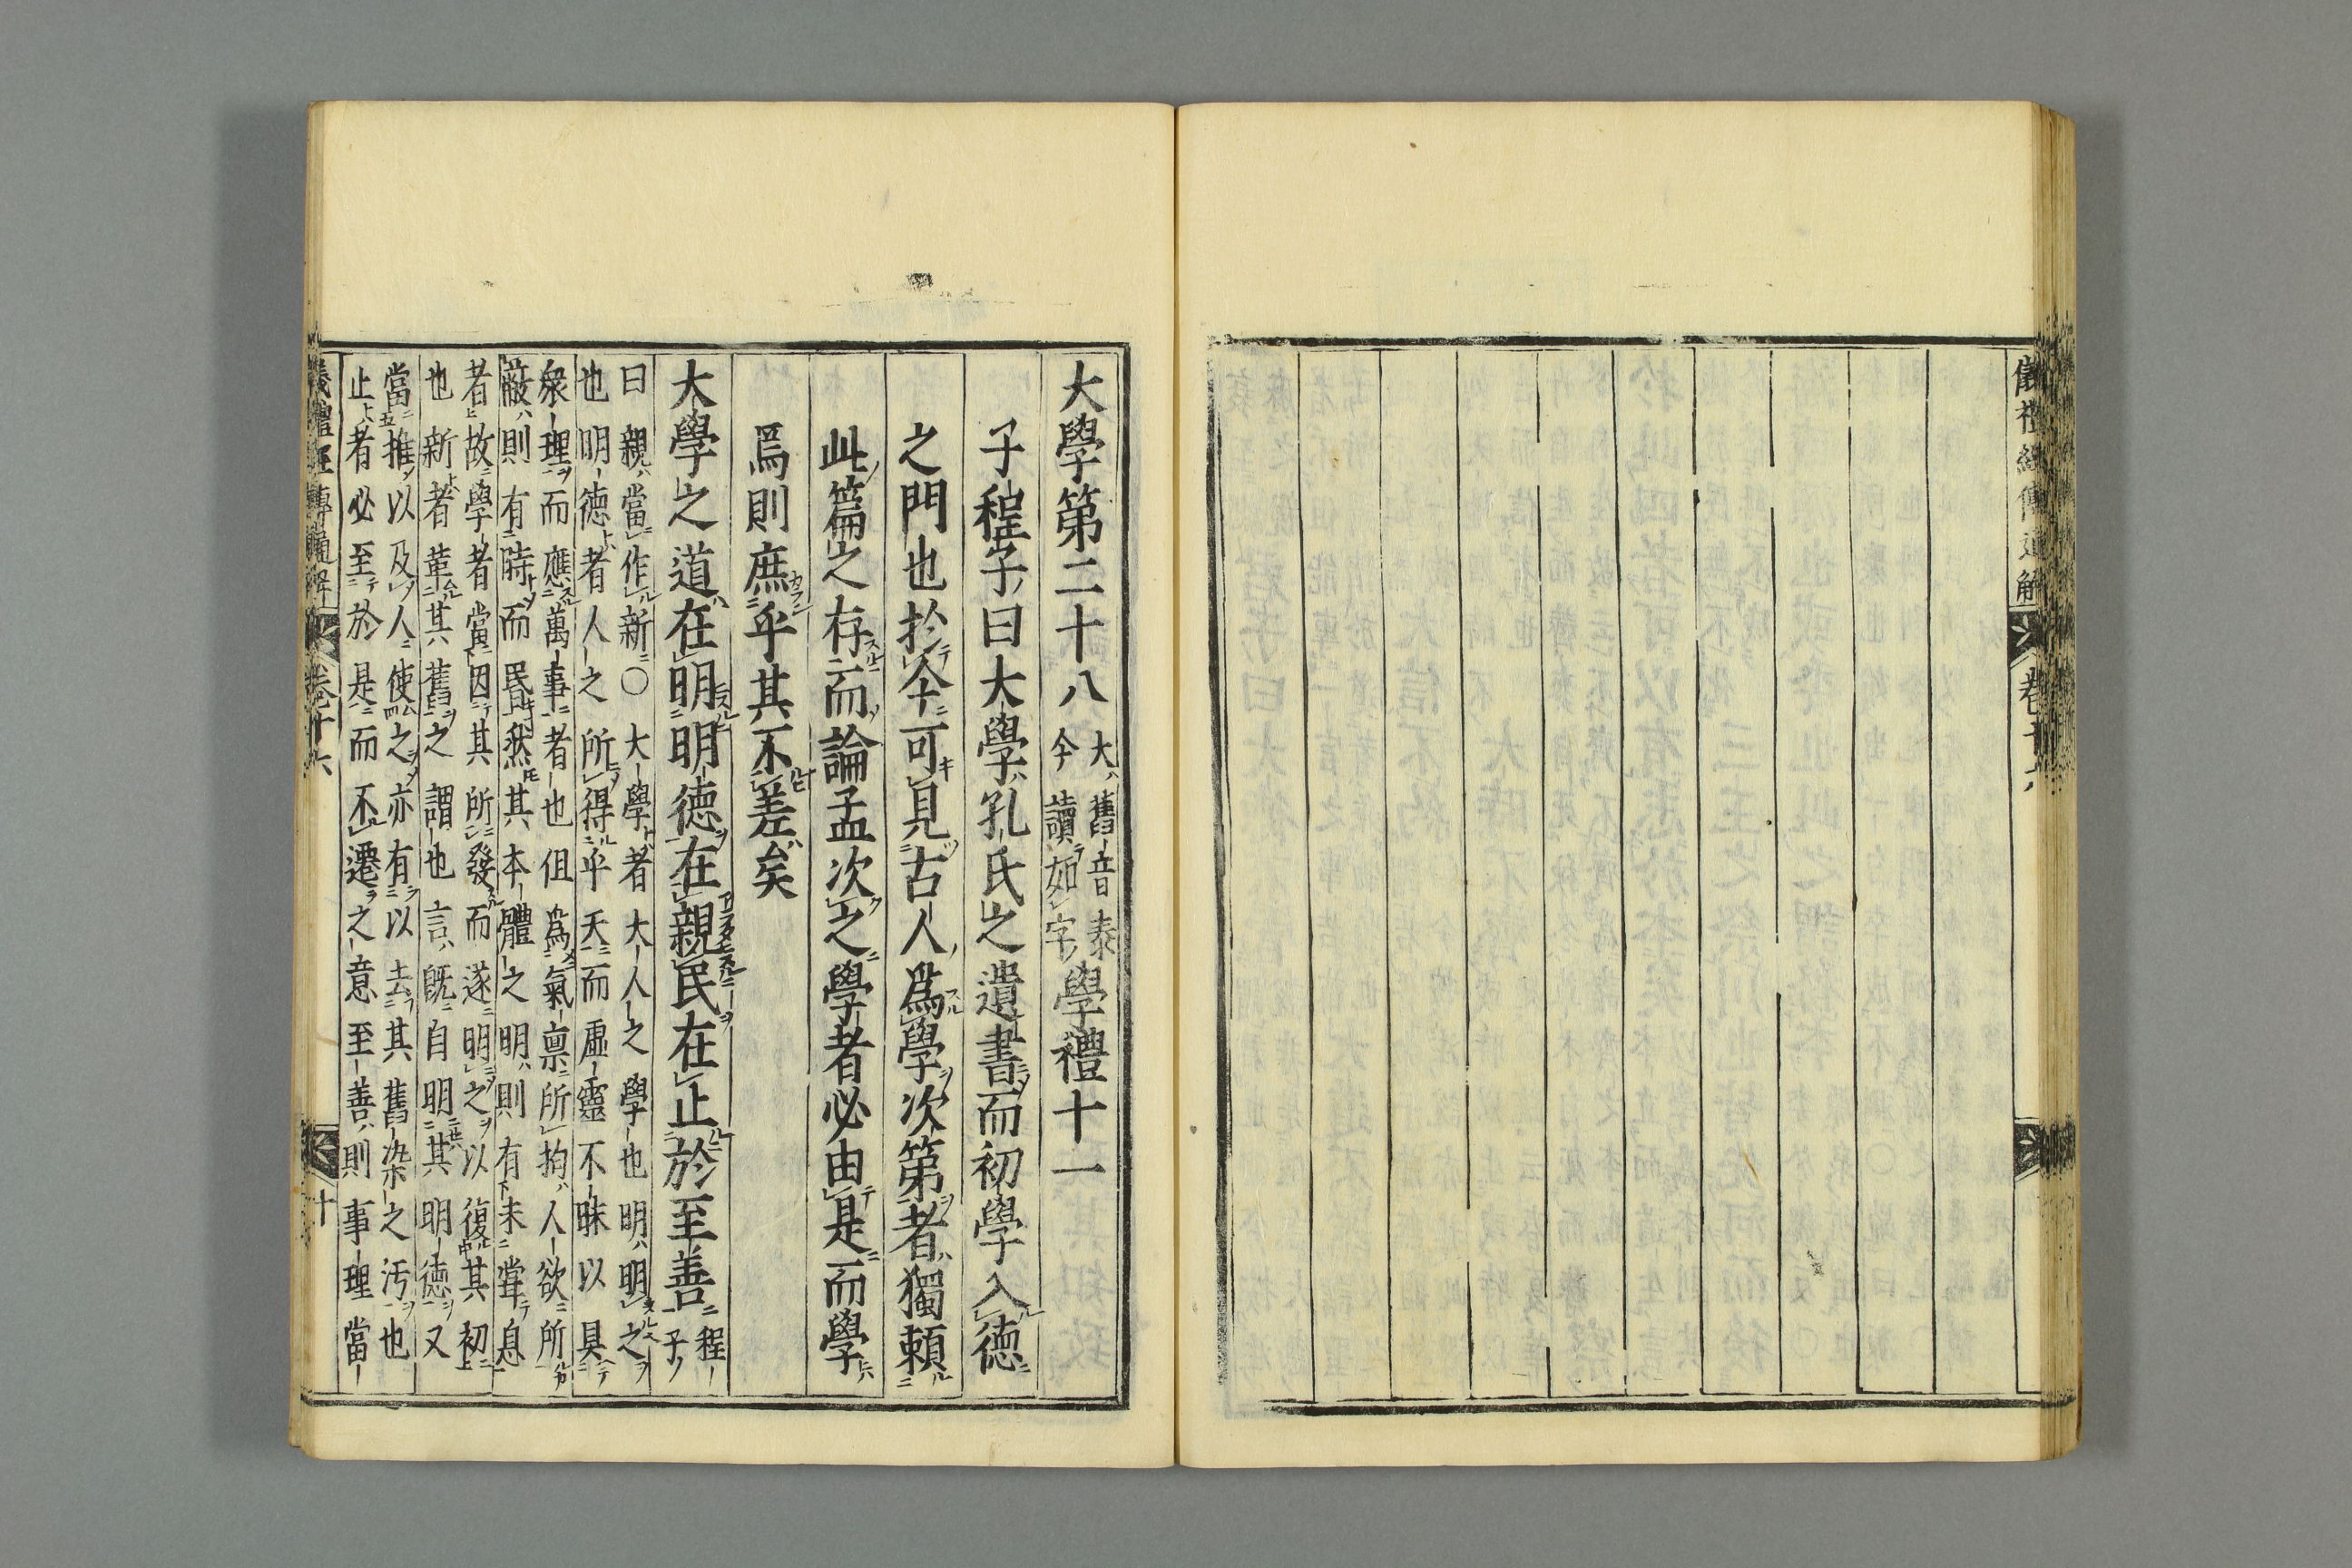 儀禮經傳通解 卷十六
大學第二十八 大舊音泰 今讀如字 學禮十一
子程子曰大學孔氏之遺書而初學入德
之門也於今可見古人爲學次第者獨頼
此篇之存而論孟次之學者必由是而學
焉則庶乎其不差矣
大學之道在明明德在親民在止於至善 程子
曰親當作新○大學者大人之學也明明之
也明德者人之所得乎天而虛靈不昧以具
衆理而應萬事者也但爲氣禀所拘人欲所
蔽則有時而昬然其本體之明則有未嘗息
者故學者當因其所發而遂明之以復其初
也新者革其舊之謂也言既自明其明德又
當推以及人使之亦有以去其舊染之汚也
止者必至於是而不遷之意至善則事理當
儀禮經傳通解 卷十六 十